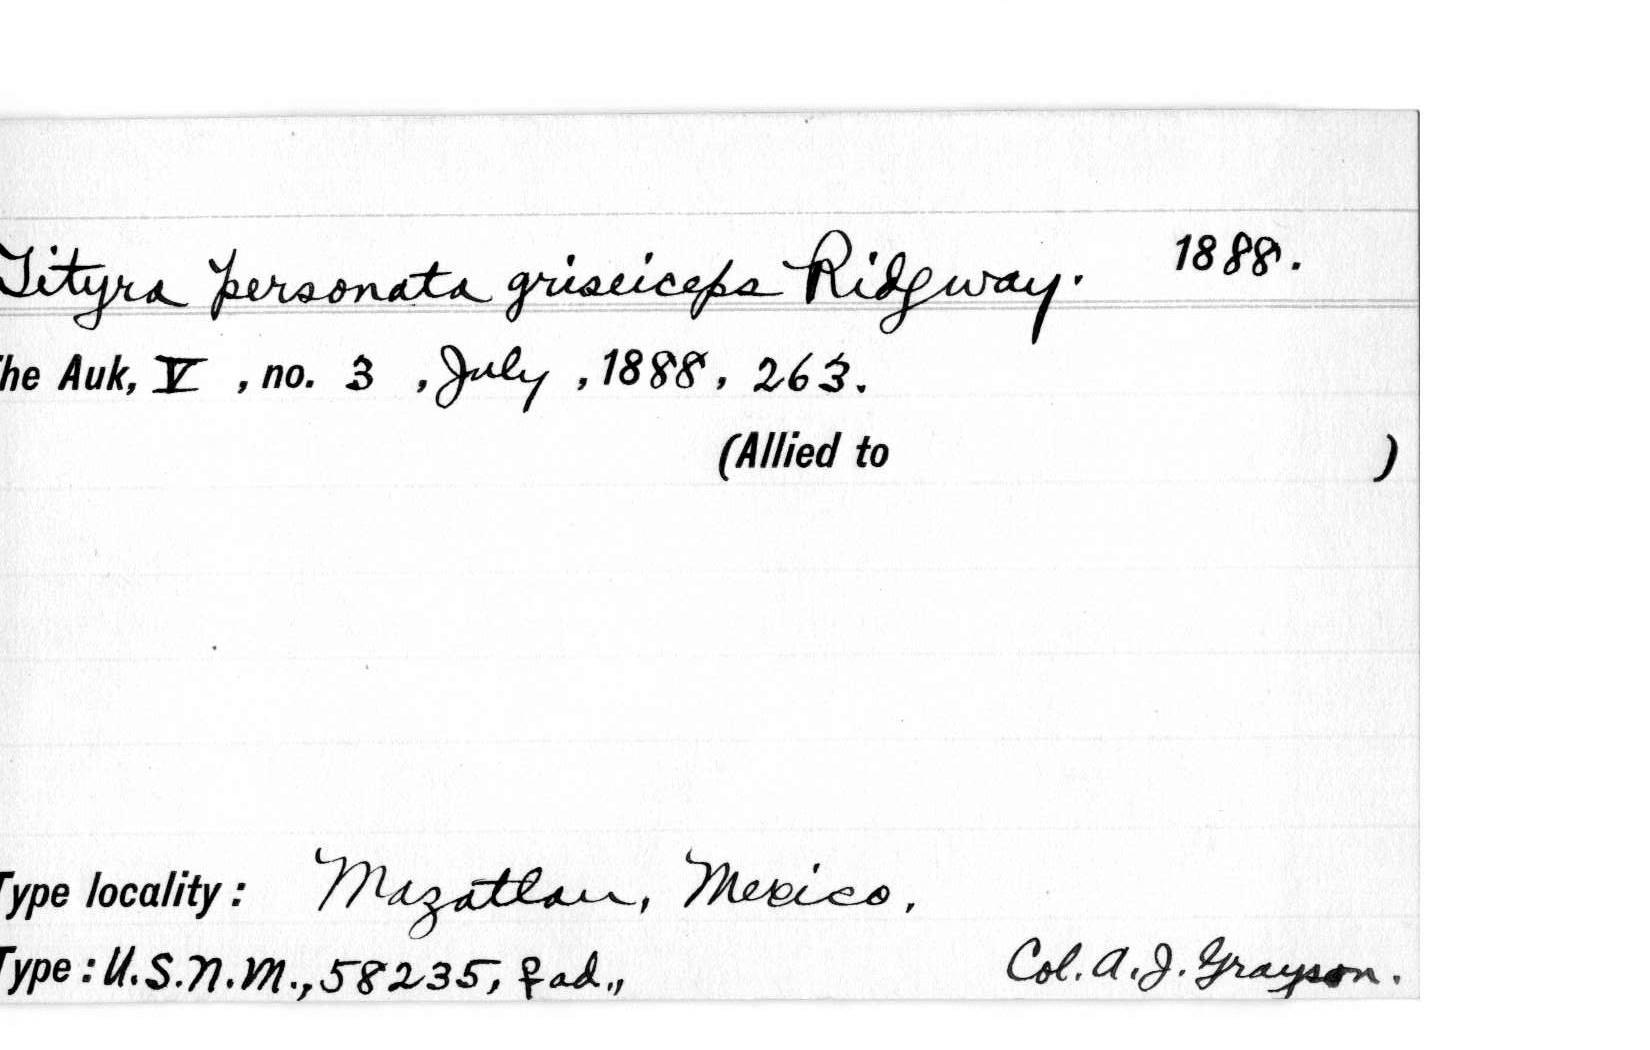 Tityra personata griseiceps Ridgway. 1888.
The Auk, V, no. 3, July, 1888, 263.
(Allied to )
Type locality: Mazatlan, Mexico.
Type: U.S.N.M., 58235, ♀ ad., Col. A. J. Grayson.